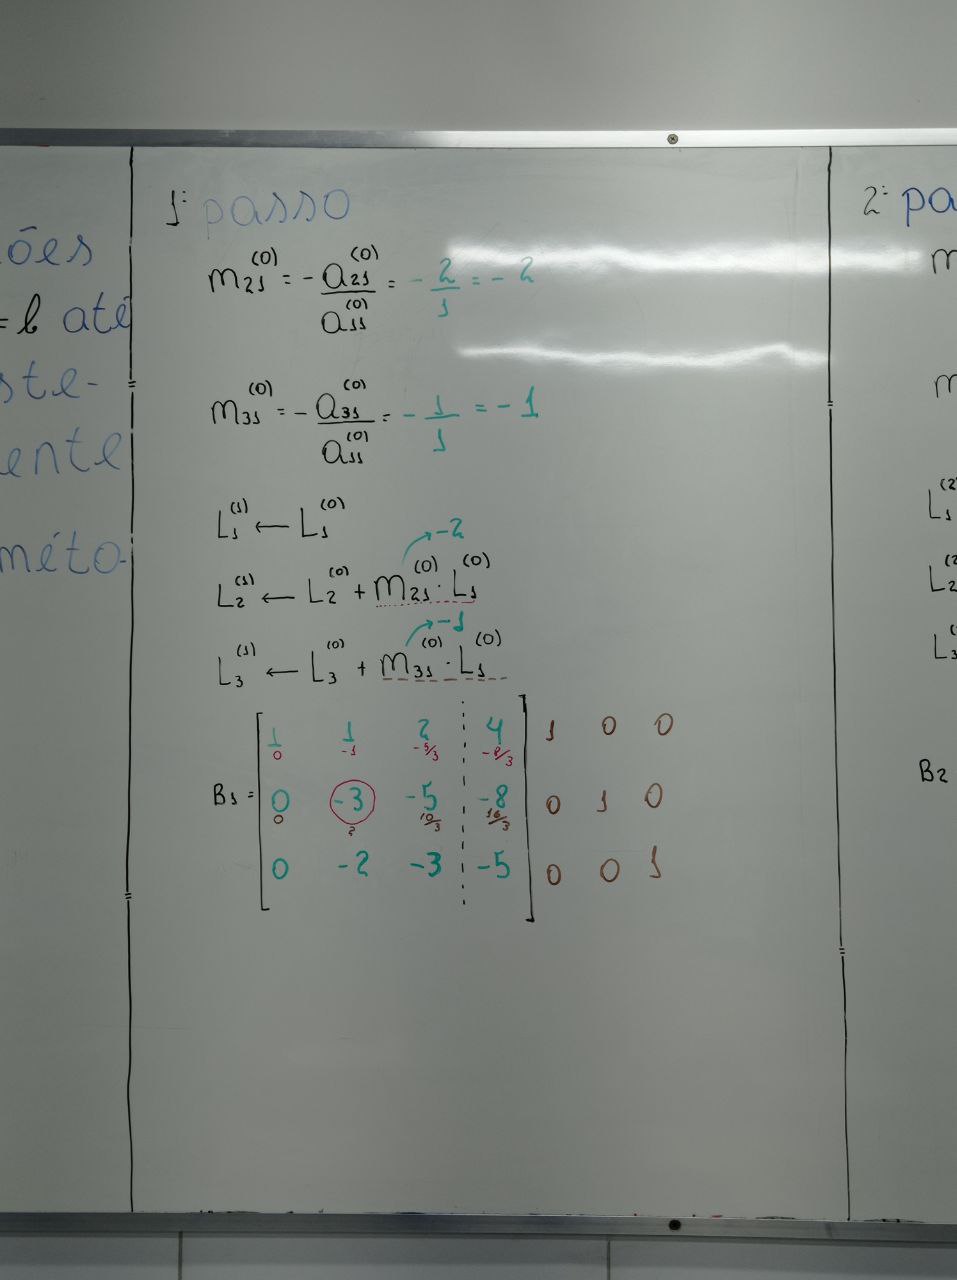 ões
= l até
ste-
ente
méto-
1º passo
m₂₁⁽⁰⁾ = - a₂₁⁽⁰⁾/a₁₁⁽⁰⁾ = - 2/1 = - 2
m₃₁⁽⁰⁾ = - a₃₁⁽⁰⁾/a₁₁⁽⁰⁾ = - 1/1 = - 1
L₁⁽¹⁾ ← L₁⁽⁰⁾
→ -2
L₂⁽¹⁾ ← L₂⁽⁰⁾ + m₂₁⁽⁰⁾ · L₁⁽⁰⁾
→ -1
L₃⁽¹⁾ ← L₃⁽⁰⁾ + m₃₁⁽⁰⁾ · L₁⁽⁰⁾
1 1 2 4 1 0 0
0 -1 -5/3 -8/3
B₁ = 0 -3 -5 -8 0 1 0
0 2 10/3 16/3
0 -2 -3 -5 0 0 1
2º pa
m
m
L₁⁽²
L₂⁽²
L₃
B₂